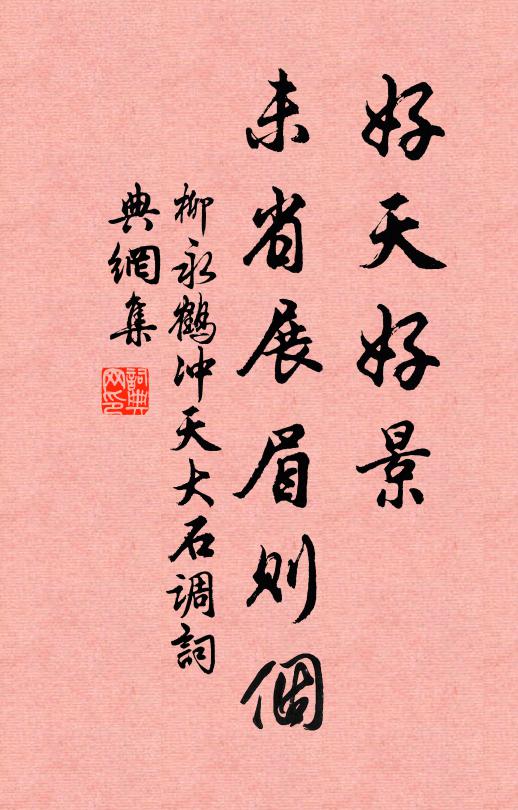 好天好景
未省展眉则個
柳永鹤冲天大石调詞
典網集
詞典网印